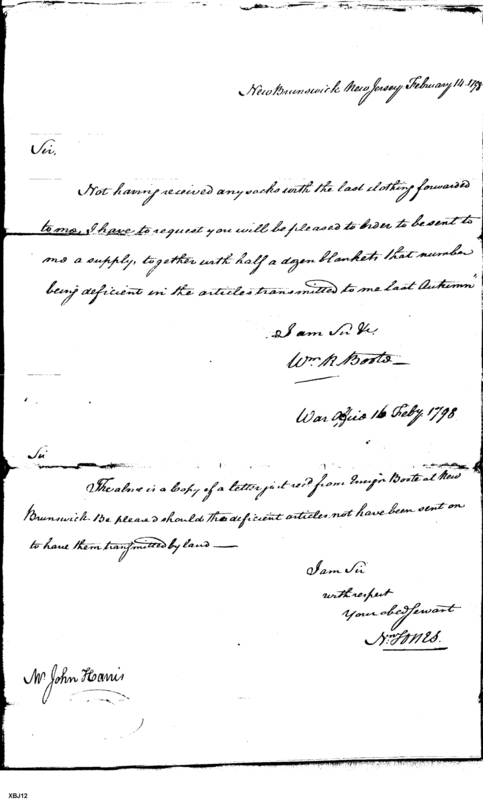 New Brunswick New Jersey February 14. 1798
Sir,
Not having received any socks with the last clothing forwarded
to me, I have to request you will be pleased to Order to be sent to
me a supply, together with half a dozen blankets that number
being deficient in the articles transmitted to me last Autumn"
I am Sir &c.
Wm. R Boote
War Office 16 Feby. 1798
Sir
The above is a Copy of a letter just recd from Ensign Boote at New
Brunswick. Be pleased should the deficient articles not have been sent on
to have them transmitted by land —
I am Sir
with respect
Your obed Servant
Nn JONES.
Mr. John Harris
XBJ12